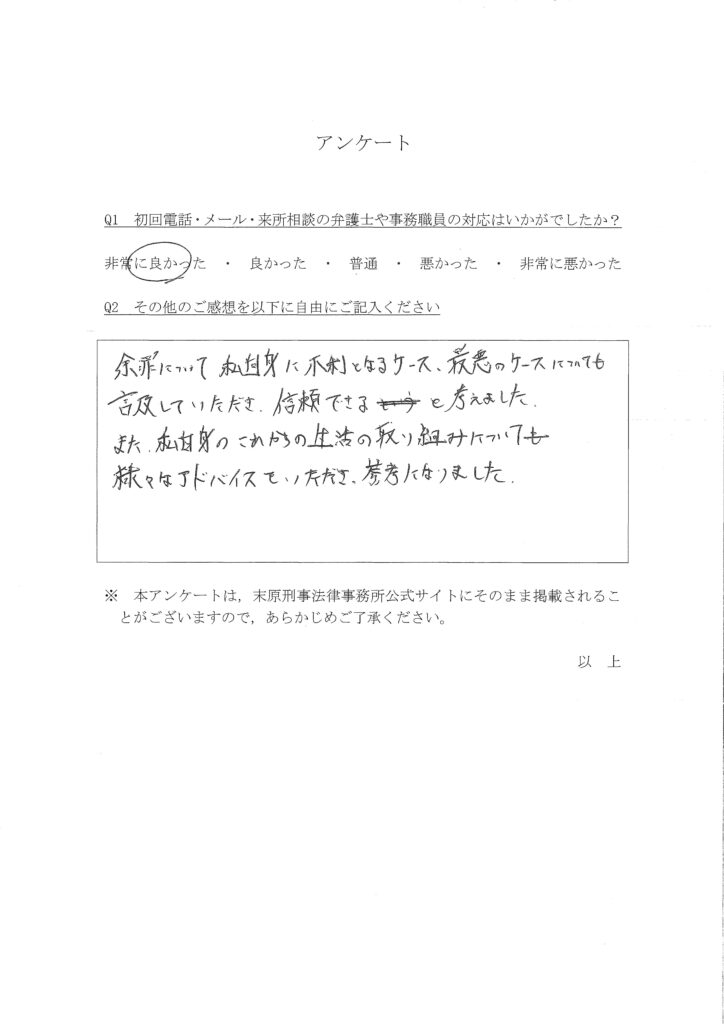 アンケート
Q1 初回電話・メール・来所相談の弁護士や事務職員の対応はいかがでしたか？
非常に良かった ・ 良かった ・ 普通 ・ 悪かった ・ 非常に悪かった
Q2 その他のご感想を以下に自由にご記入ください
余罪について私自身に不利となるケース、最悪のケースについても
言及していただき、信頼できると考えました。
また、私自身のこれからの生活の取り組みについても
様々なアドバイスをいただき、参考になりました。
※ 本アンケートは，末原刑事法律事務所公式サイトにそのまま掲載されるこ
とがございますので，あらかじめご了承ください。
以 上